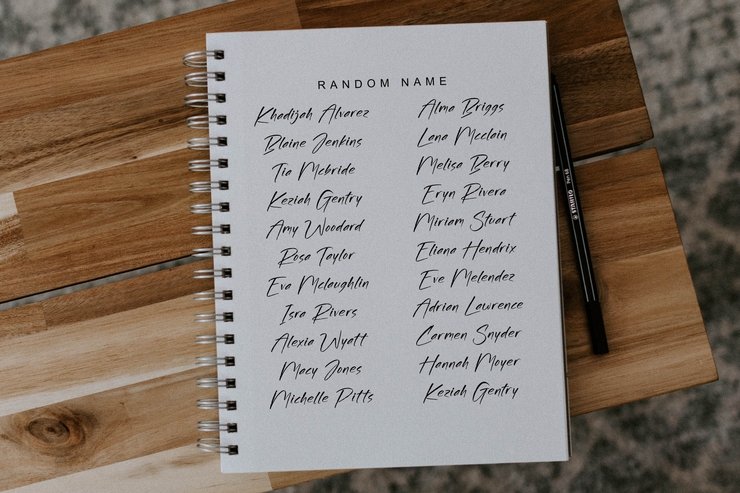 RANDOM NAME
Khadijah Alvarez
Blaine Jenkins
Tia Mcbride
Keziah Gentry
Amy Woodard
Rosa Taylor
Eva Mclaughlin
Isra Rivers
Alexia Wyatt
Macy Jones
Michelle Pitts
Alma Briggs
Lana Mcclain
Melisa Berry
Eryn Rivera
Miriam Stuart
Eliana Hendrix
Eve Melendez
Adrian Lawrence
Carmen Snyder
Hannah Moyer
Keziah Gentry
STABILO